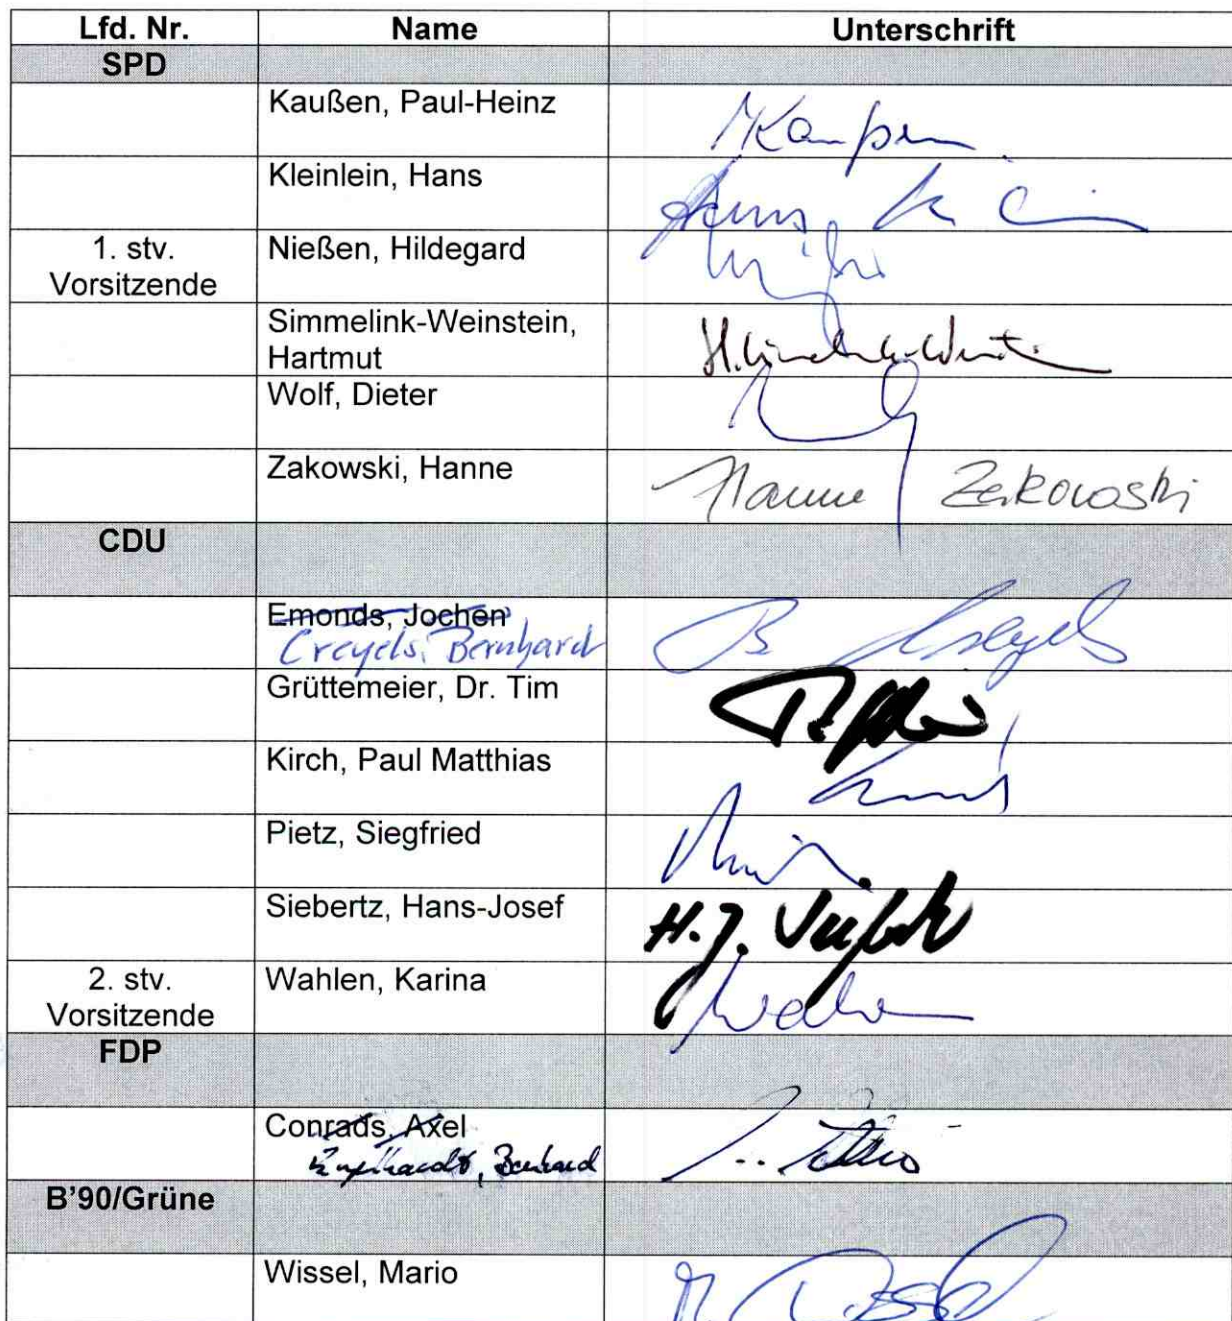 Lfd. Nr. Name Unterschrift
SPD
Kaußen, Paul-Heinz
Kleinlein, Hans
1. stv. Nießen, Hildegard
Vorsitzende
Simmelink-Weinstein,
Hartmut
Wolf, Dieter
Zakowski, Hanne Hanne Zakowski
CDU
Emonds, Jochen
Creyels, Bernhard B. Creyels
Grüttemeier, Dr. Tim
Kirch, Paul Matthias
Pietz, Siegfried
Siebertz, Hans-Josef
2. stv. Wahlen, Karina
Vorsitzende
FDP
Conrads, Axel
Engelhardt, Bernhard
B'90/Grüne
Wissel, Mario